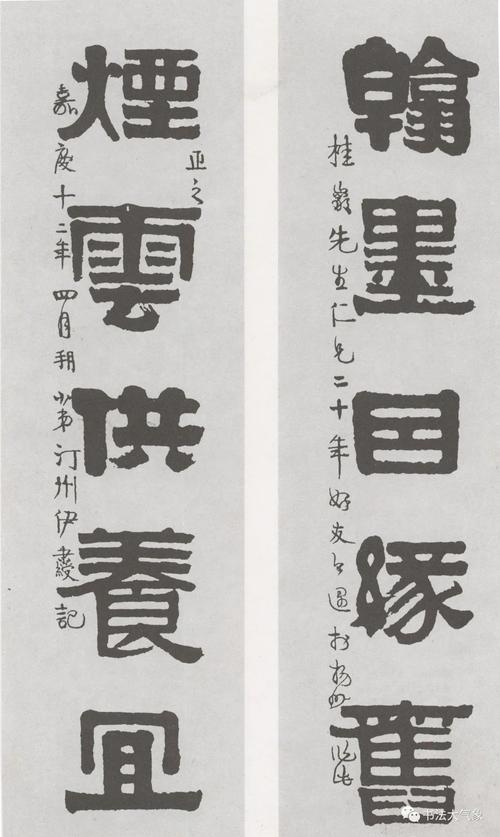 翰墨因緣舊
桂巖先生仁兄二十年好友遇於揚州
正之
煙雲供養宜
嘉慶十二年四月朔小弟汀州伊秉綬記
书法大气象